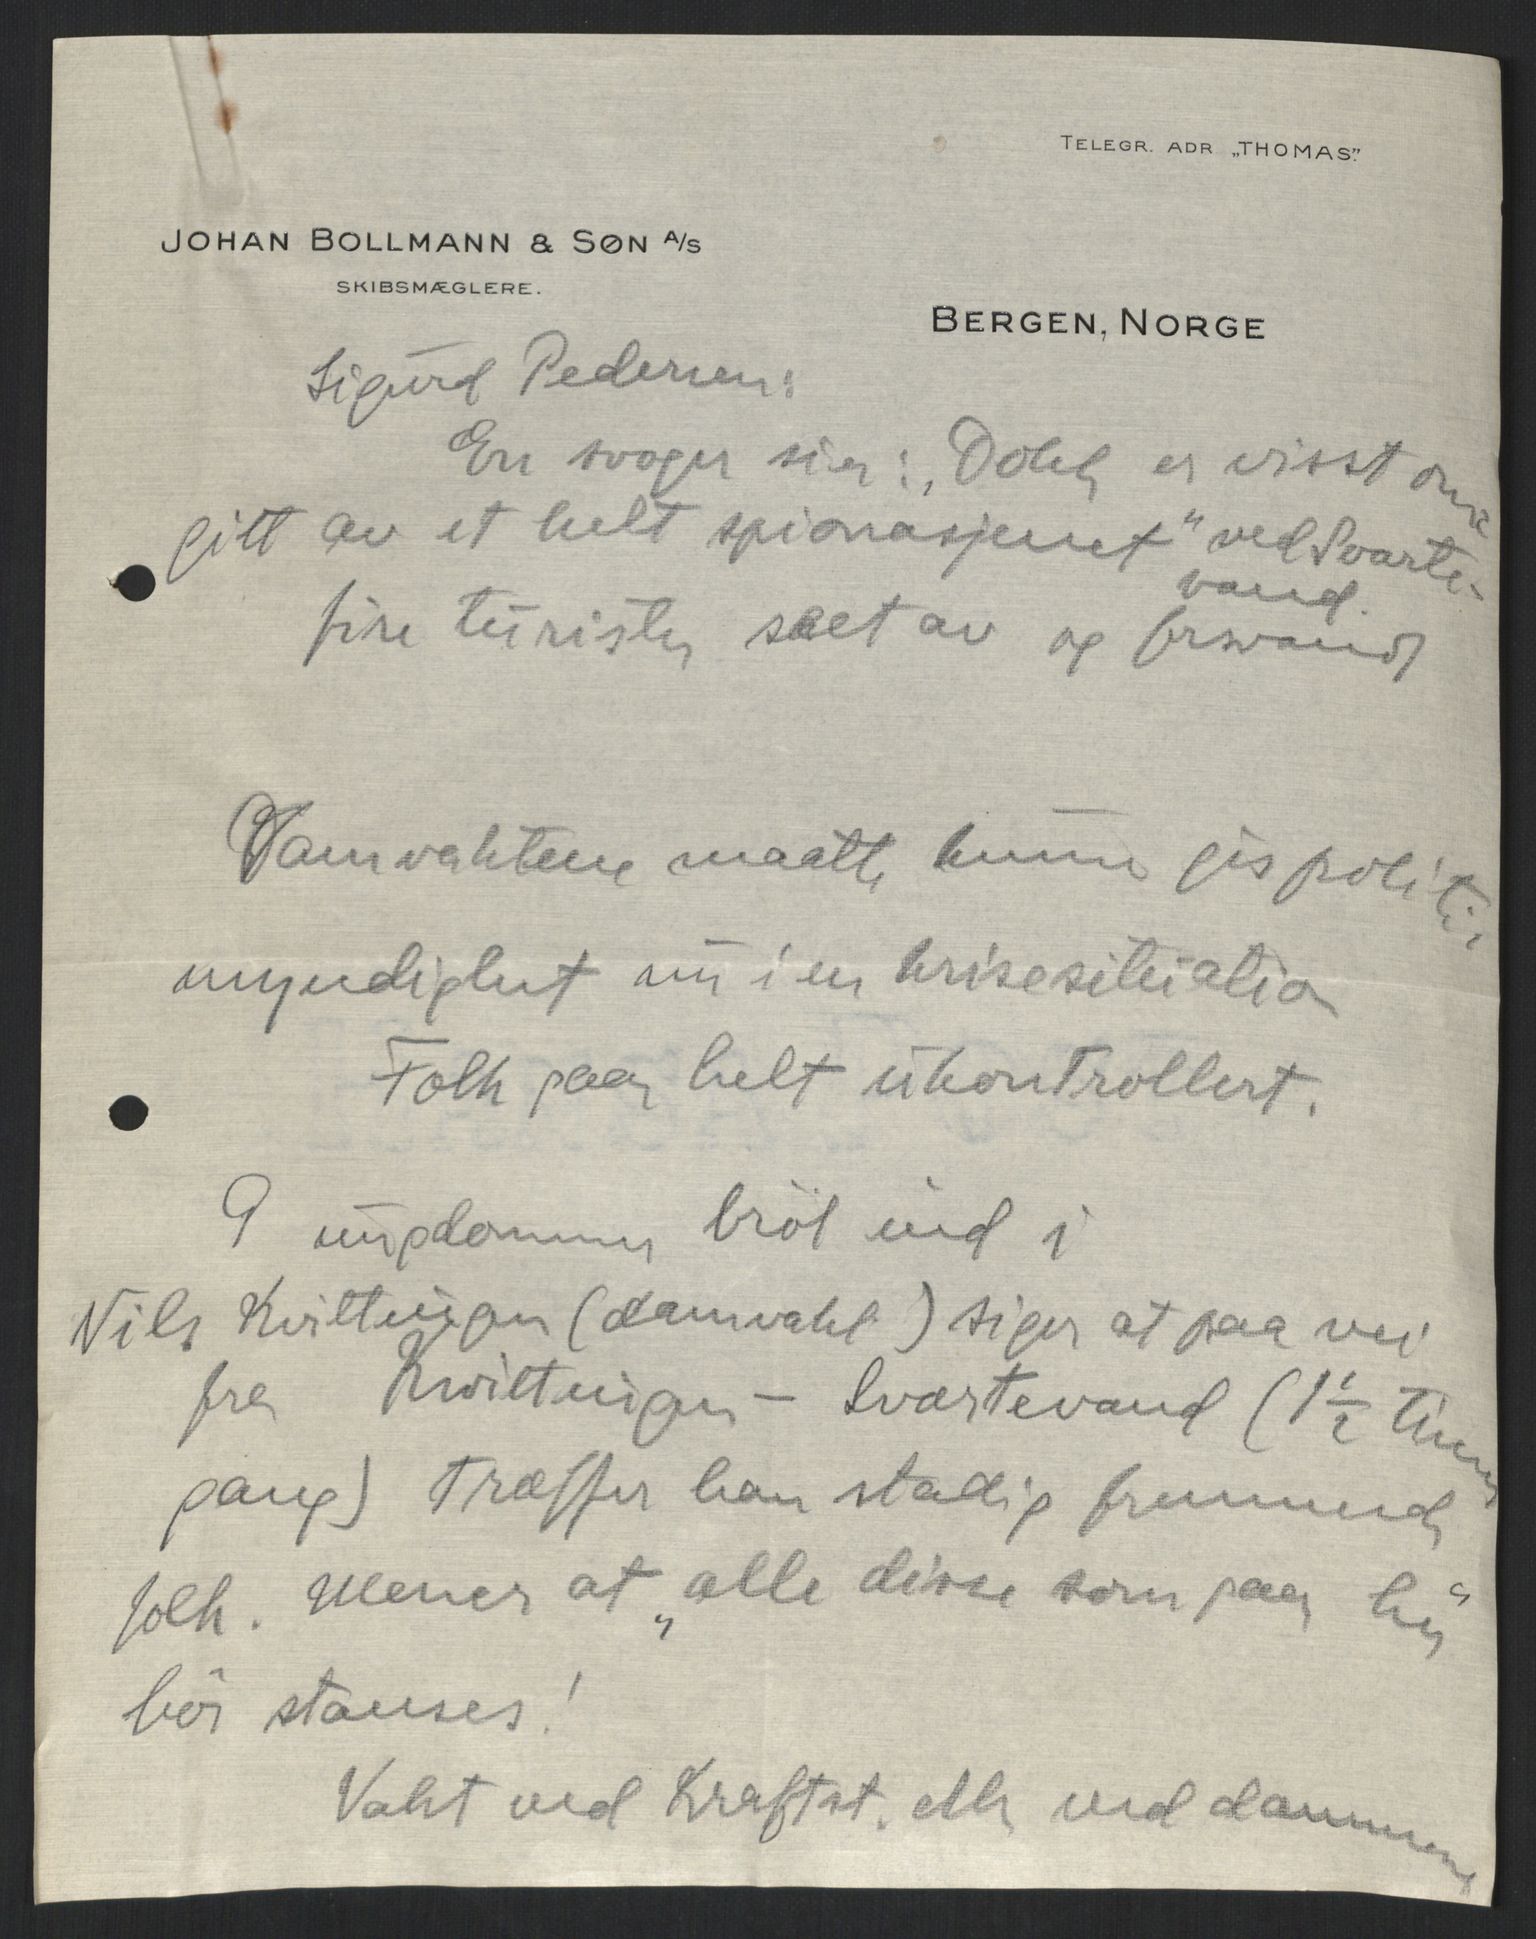 TELEGR. ADR „THOMAS”.
JOHAN BOLLMANN & SØN A/S
SKIBSMÆGLERE.
BERGEN, NORGE
Sigurd Pedersen:
En svoger sier: „Dokk er visst om-
gitt av et helt spionasjenet" ved Svarte-
vand.
fire turister set av og forsvandt
Damvaktene maatte kunne gis politi-
myndighet nu i en krisesituation
Folk gaar helt ukontrollert.
9 ungdommer bröt ind i
Nils Kvittingen (damvakt) siger at paa vei
fra Kvittingen – Svartevand (1½ times
gang) træffer han stadig fremmede
folk. Mener at „alle disse som gaar her"
bör stanses!
Vakt ved Kraftst. eller ved dammene